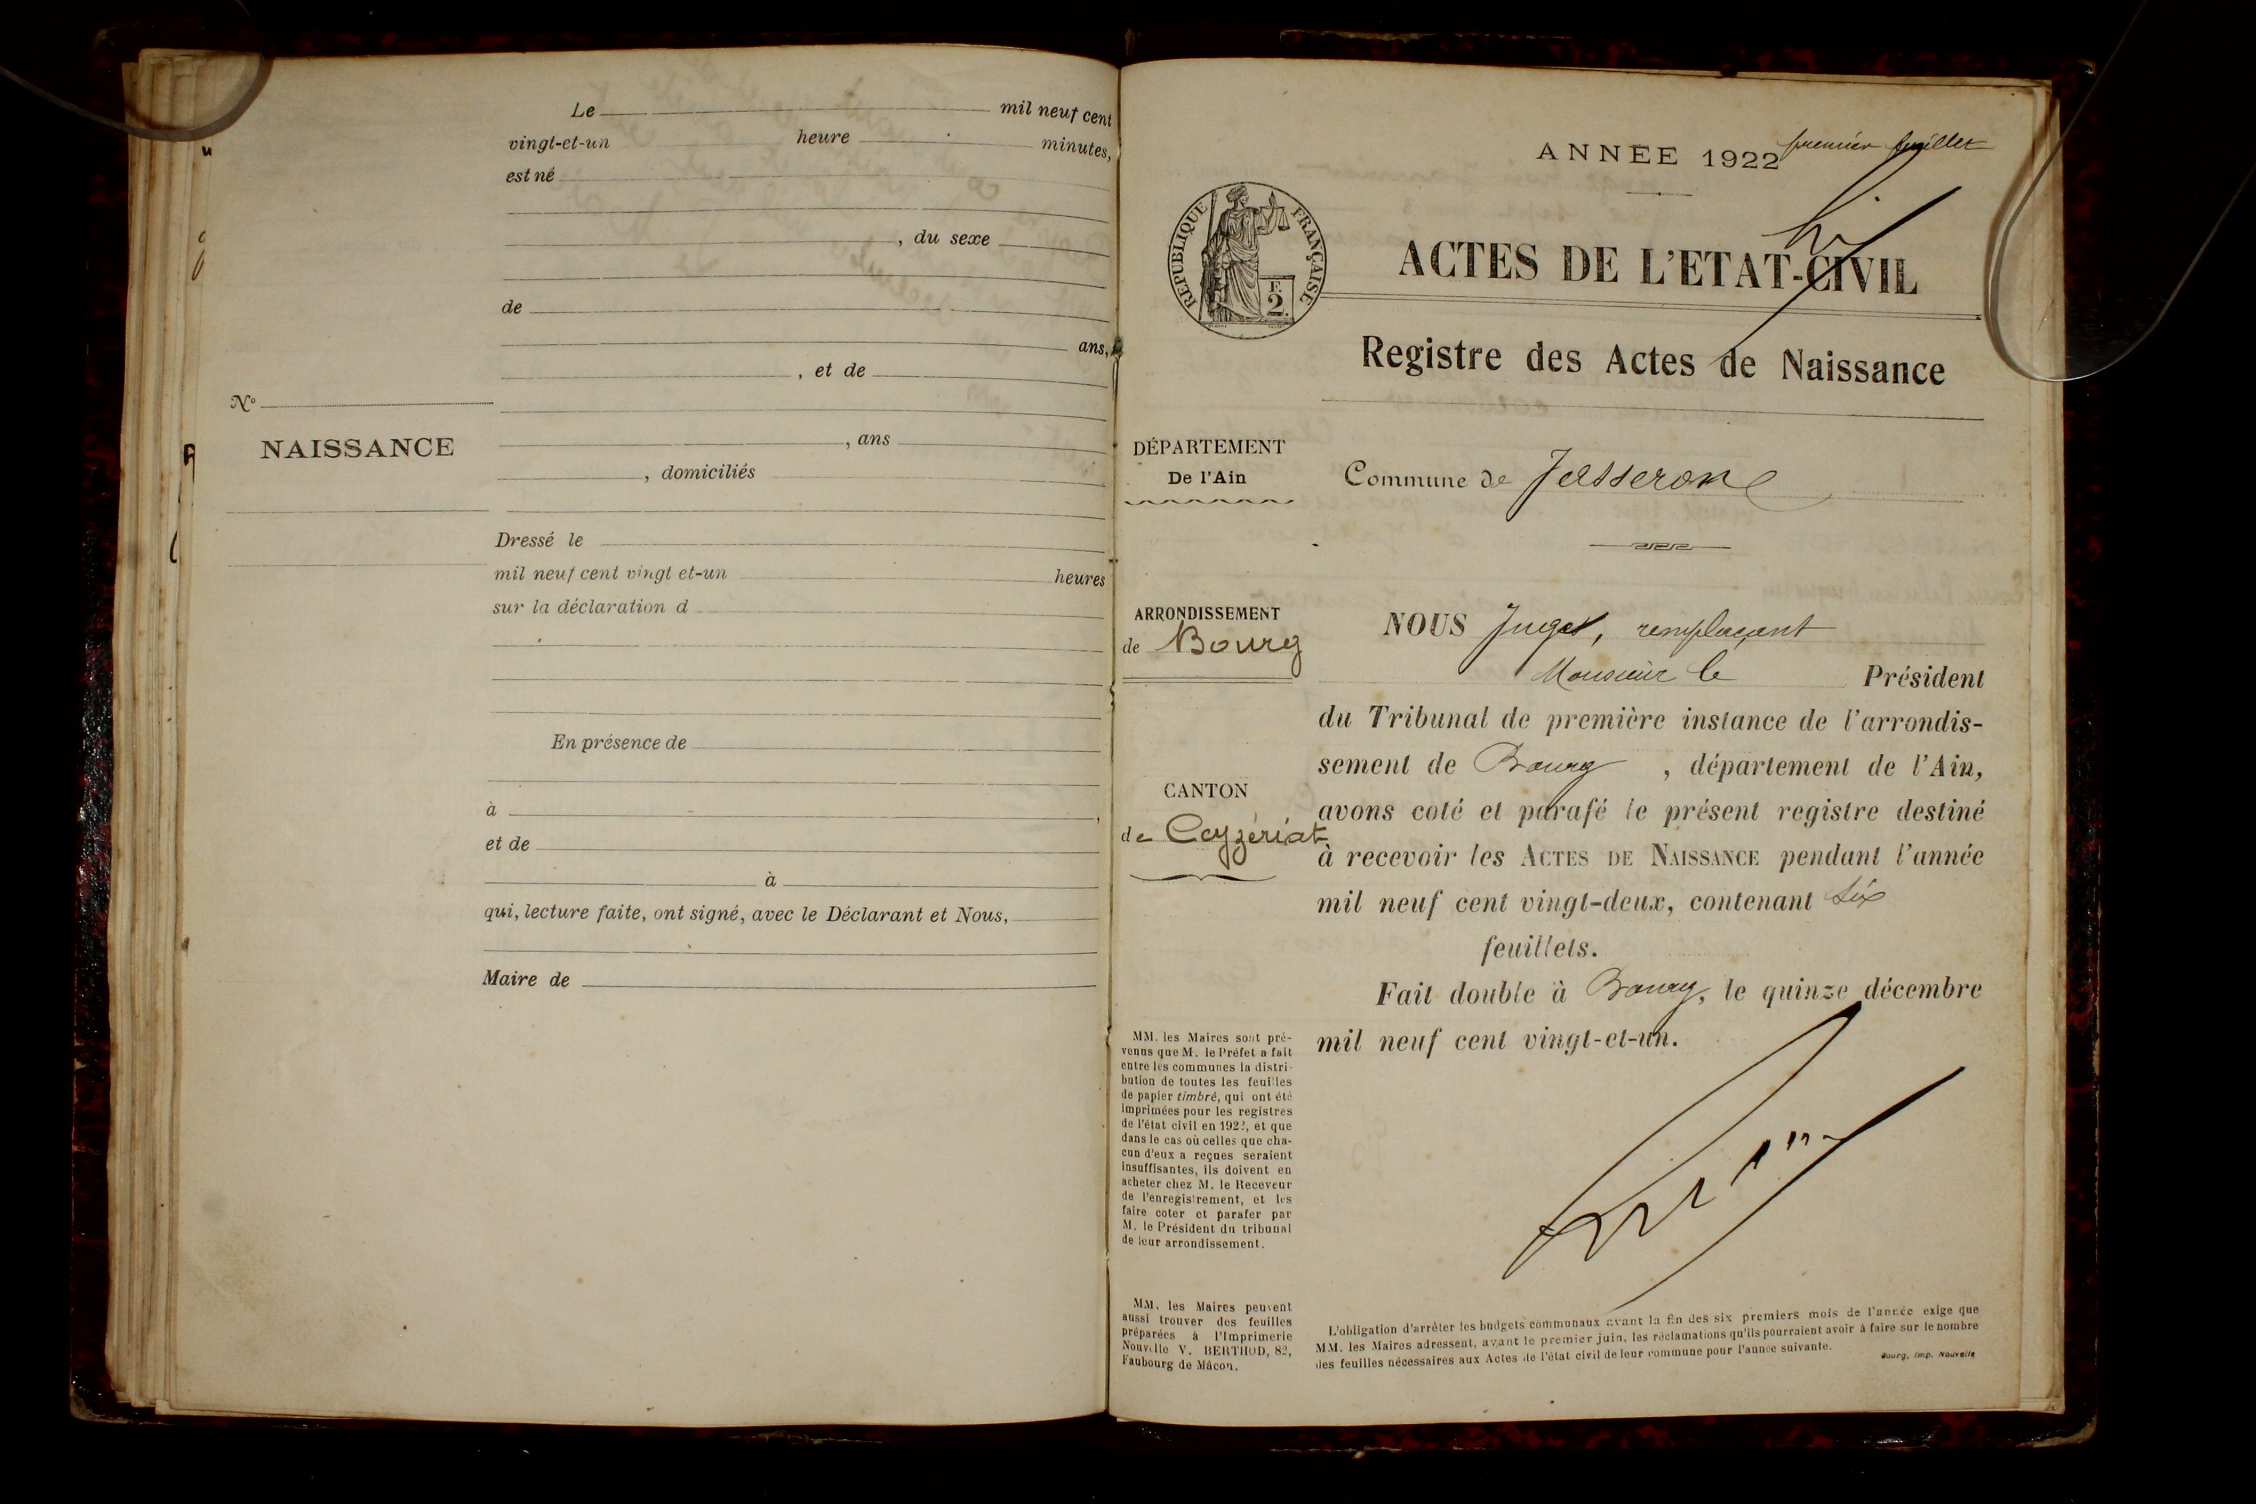 Le mil neuf cent
vingt-et-un heure minutes,
est né
, du sexe
de
ans,
, et de
, ans
, domiciliés
N°
NAISSANCE
Dressé le
mil neuf cent vingt et-un heures
sur la déclaration d
En présence de
à ,
et de
à
qui, lecture faite, ont signé, avec le Déclarant et Nous,
Maire de
ANNÉE 1922 premier feuillet
RÉPUBLIQUE FRANÇAISE
F.
2.
ACTES DE L'ETAT-CIVIL
Registre des Actes de Naissance
DÉPARTEMENT
De l'Ain
Commune de Jasseron
ARRONDISSEMENT
de Bourg
CANTON
de Ceyzériat
NOUS Juget, remplaçant
Monsieur le Président
du Tribunal de première instance de l'arrondis-
sement de Bourg , département de l'Ain,
avons coté et parafé le présent registre destiné
à recevoir les ACTES DE NAISSANCE pendant l'année
mil neuf cent vingt-deux, contenant six
feuillets.
Fait double à Bourg, le quinze décembre
mil neuf cent vingt-et-un.
MM. les Maires sont pré-
venus que M. le Préfet a fait
entre les communes la distri-
bution de toutes les feuilles
de papier timbré, qui ont été
imprimées pour les registres
de l'état civil en 1922, et que
dans le cas où celles que cha-
cun d'eux a reçues seraient
insuffisantes, ils doivent en
acheter chez M. le Receveur
de l'enregistrement, et les
faire coter et parafer par
M. le Président du tribunal
de leur arrondissement.
MM. les Maires peuvent
aussi trouver des feuilles
préparées à l'Imprimerie
Nouvelle V. BERTHOD, 82,
Faubourg de Mâcon.
L'obligation d'arrêter les budgets communaux avant la fin des six premiers mois de l'année exige que
MM. les Maires adressent, avant le premier juin, les réclamations qu'ils pourraient avoir à faire sur le nombre
des feuilles nécessaires aux Actes de l'état civil de leur commune pour l'année suivante.
Bourg, Imp. Nouvelle